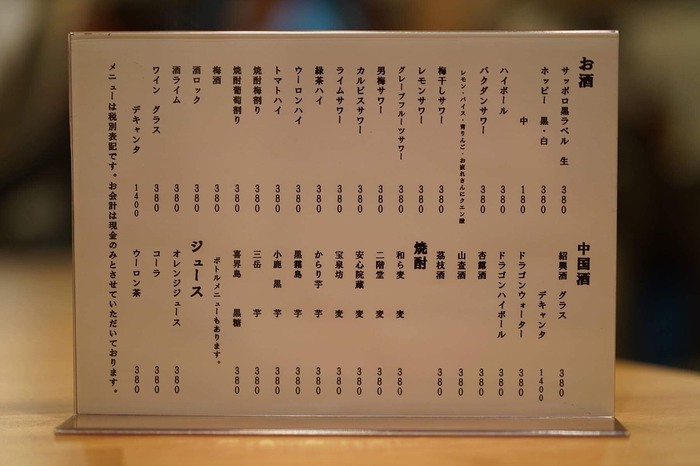 お酒
サッポロ黒ラベル 生 380
ホッピー 黒・白 380
中 180
ハイボール 380
バクダンサワー 380
レモン・バイス・青りんご・お疲れさんにクエン酸
梅干しサワー 380
レモンサワー 380
グレープフルーツサワー 380
男梅サワー 380
カルピスサワー 380
ライムサワー 380
緑茶ハイ 380
ウーロンハイ 380
トマトハイ 380
焼酎梅割り 380
焼酎葡萄割り 380
梅酒 380
酒ロック 380
酒ライム 380
ワイン グラス 380
デキャンタ 1400
中国酒
紹興酒 グラス 380
デキャンタ 1400
ドラゴンウォーター 380
ドラゴンハイボール 380
杏露酒 380
山査酒 380
茘枝酒 380
焼酎
和ら麦 麦 380
二階堂 麦 380
安心院蔵 麦 380
宝泉坊 麦 380
からり芋 芋 380
黒霧島 芋 380
小鹿 黒 芋 380
三岳 芋 380
喜界島 黒糖 380
ボトルメニューもあります。
ジュース
オレンジジュース 380
コーラ 380
ウーロン茶 380
メニューは税別表記です。お会計は現金のみとさせていただいております。